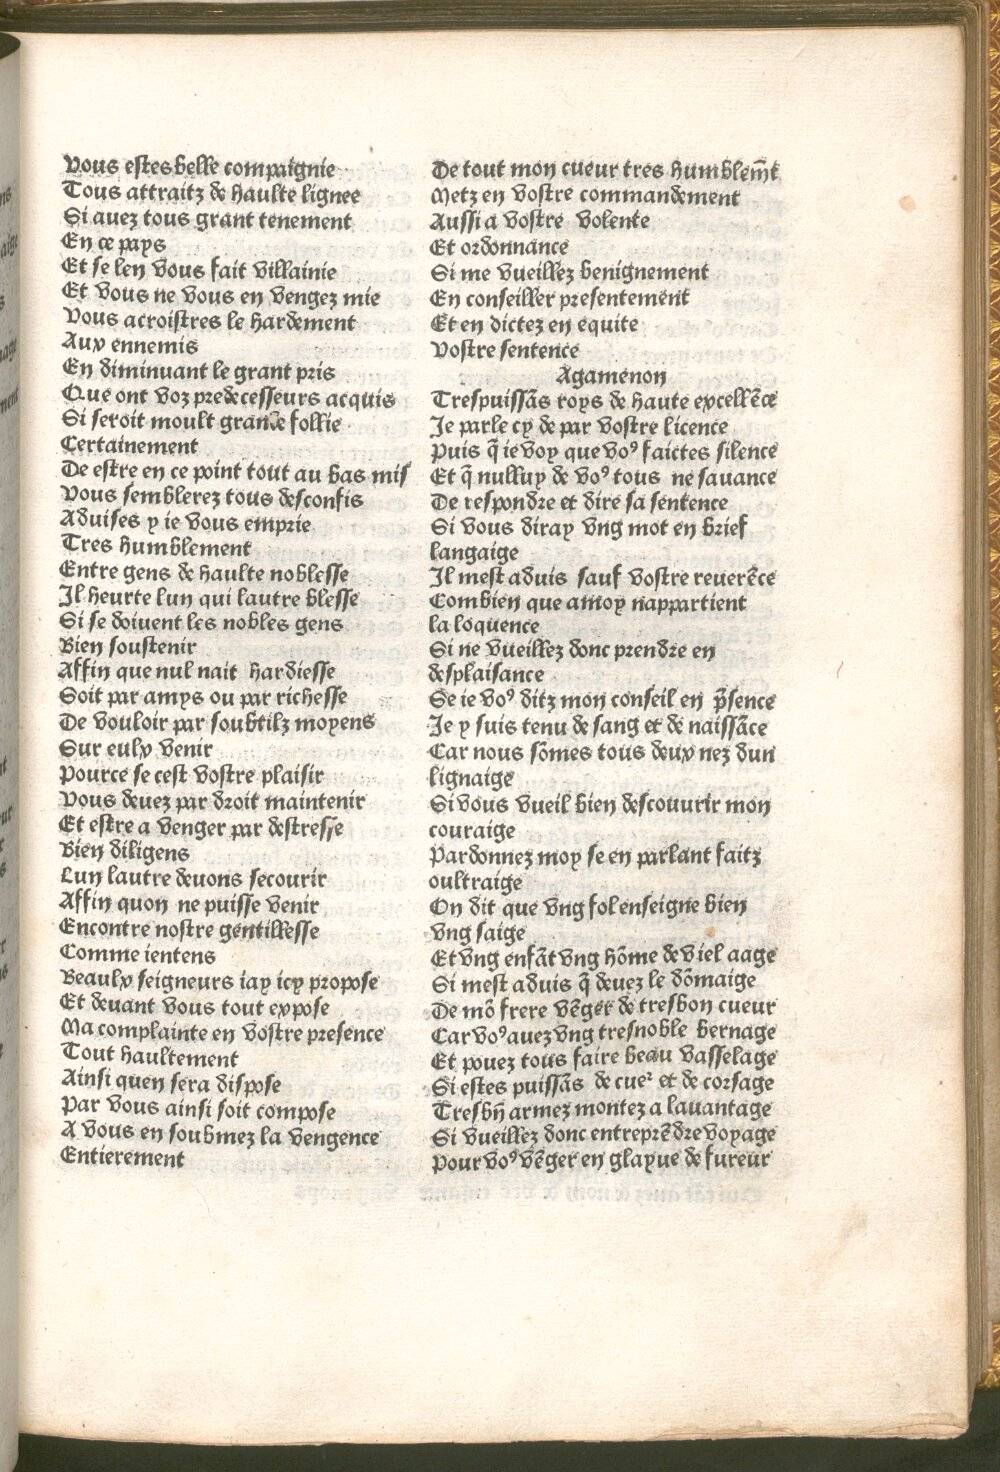 Vous estes belle compaignie
Tous attraitz de haulte lignee
Si auez tous grant tenement
En ce pays
Et se len vous fait villainie
Et vous ne vous en vengez mie
Vous acroistres le hardement
Aux ennemis
En diminuant le grant pris
Que ont voz predecesseurs acquis
Si seroit moult grande follie
Certainement
De estre en ce point tout au bas mis
Vous semblerez tous desconfis
Aduises y ie vous emprie
Tres humblement
Entre gens de haulte noblesse
Il heurte lun qui lautre blesse
Si se doiuent les nobles gens
Bien soustenir
Affin que nul nait hardiesse
Soit par amys ou par richesse
De vouloir par soubtilz moyens
Sur eulx venir
Pource se cest vostre plaisir
Vous deuez par droit maintenir
Et estre a venger par destresse
Bien diligens
Lun lautre deuons secourir
Affin quon ne puisse venir
Encontre nostre gentillesse
Comme ientens
Beaulx seigneurs iay icy propose
Et deuant vous tout expose
Ma complainte en vostre presence
Tout haultement
Ainsi quen sera dispose
Par vous ainsi soit compose
A vous en soubmez la vengence
Entierement
De tout mon cueur tres humblem̄t
Metz en vostre commandement
Aussi a vostre volente
Et ordonnance
Si me vueillez benignement
En conseiller presentement
Et en dictez en equite
Vostre sentence
Agamenon
Trespuissās roys de haute excellēce
Je parle cy de par vostre licence
Puis q̄ ie voy que voꝰ faictes silence
Et q̄ nulluy de voꝰ tous ne sauance
De respondre et dire sa sentence
Si vous diray vng mot en brief
langaige
Il mest aduis sauf vostre reuerēce
Combien que amoy nappartient
la loquence
Si ne vueillez donc prendre en
desplaisance
Se ie voꝰ ditz mon conseil en p̄sence
Je y suis tenu de sang et de naissāce
Car nous sōmes tous deux nez dun
lignaige
Si vous vueil bien descouurir mon
couraige
Pardonnez moy se en parlant faitz
oultraige
On dit que vng fol enseigne bien
vng saige
Et vng enfāt vng hōme de viel aage
Si mest aduis q̄ deuez le dōmaige
De mō frere vēger de tresbon cueur
Car voꝰ auez vng tresnoble bernage
Et pouez tous faire beau vasselage
Si estes puissās de cueᷣ et de corsage
Tresbn̄ armez montez a lauantage
Si vueillez donc entreprēdre voyage
Pour voꝰ vēger en glayue de fureur